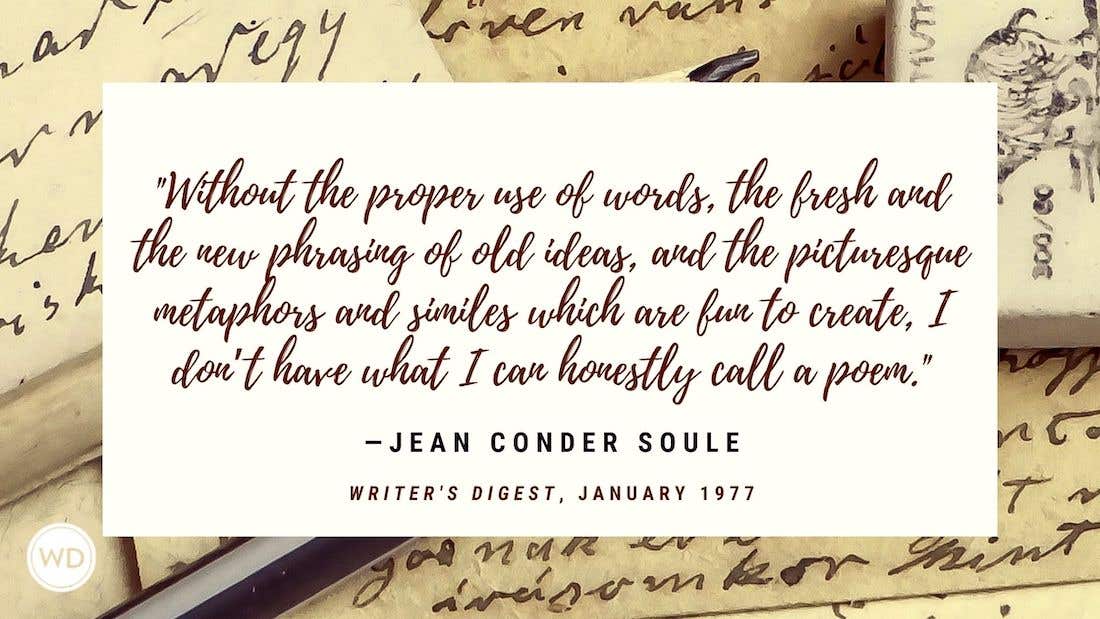 "Without the proper use of words, the fresh and
the new phrasing of old ideas, and the picturesque
metaphors and similes which are fun to create, I
don't have what I can honestly call a poem."
—JEAN CONDER SOULE
WRITER'S DIGEST, JANUARY 1977
WD